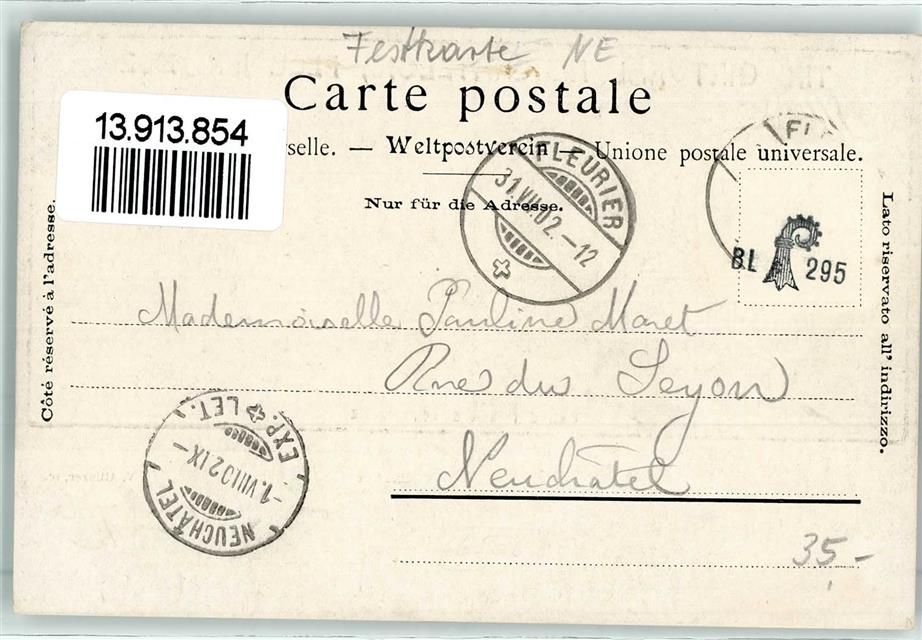 Festkarte NE
Carte postale
13.913.854
selle. — Weltpostverein — Unione postale universale.
Nur für die Adresse.
FLEURIER
31.VII.02.-12
FL
BL 295
Côté réservé à l'adresse.
Lato riservato all' indirizzo.
Mademoiselle Pauline Maret
Rue du Seyon
Neuchâtel
EXP. LET.
-1.VIII.02 IX-
NEUCHÂTEL
35.-